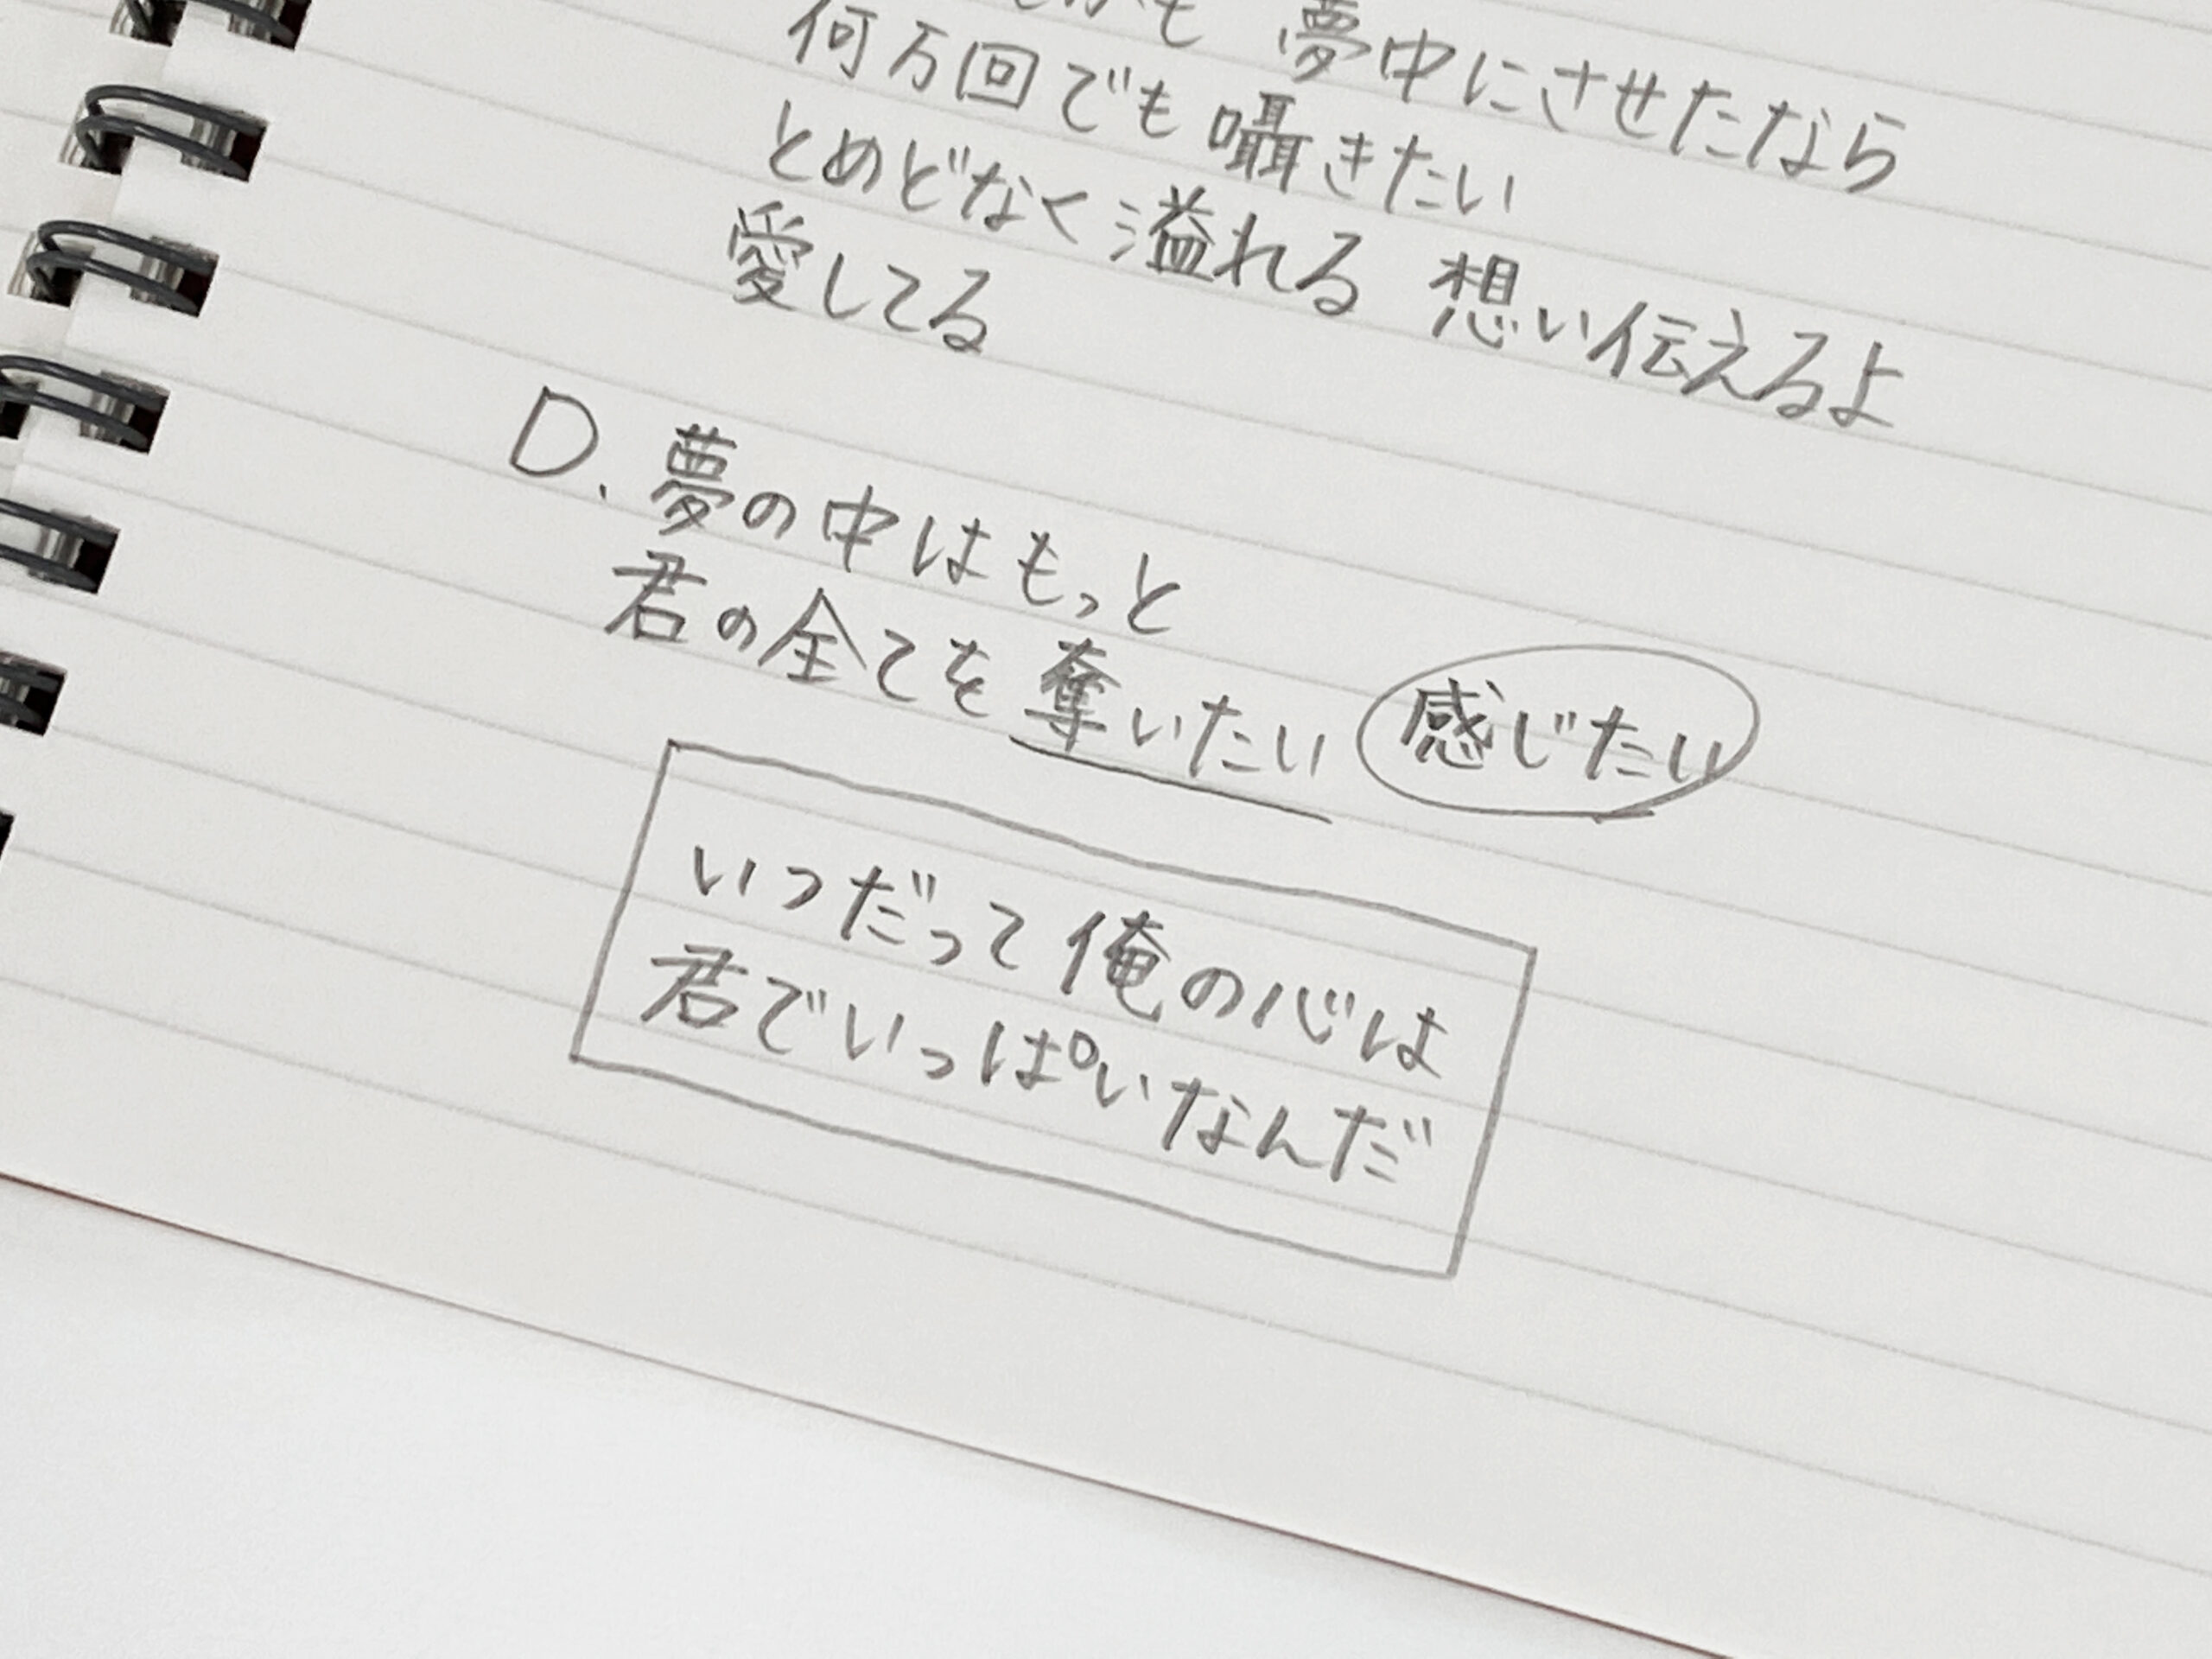 夢中にさせたなら
何万回でも囁きたい
とめどなく溢れる 想い伝えるよ
愛してる
D、夢の中はもっと
君の全てを奪いたい 感じたい
いつだって俺の心は
君でいっぱいなんだ